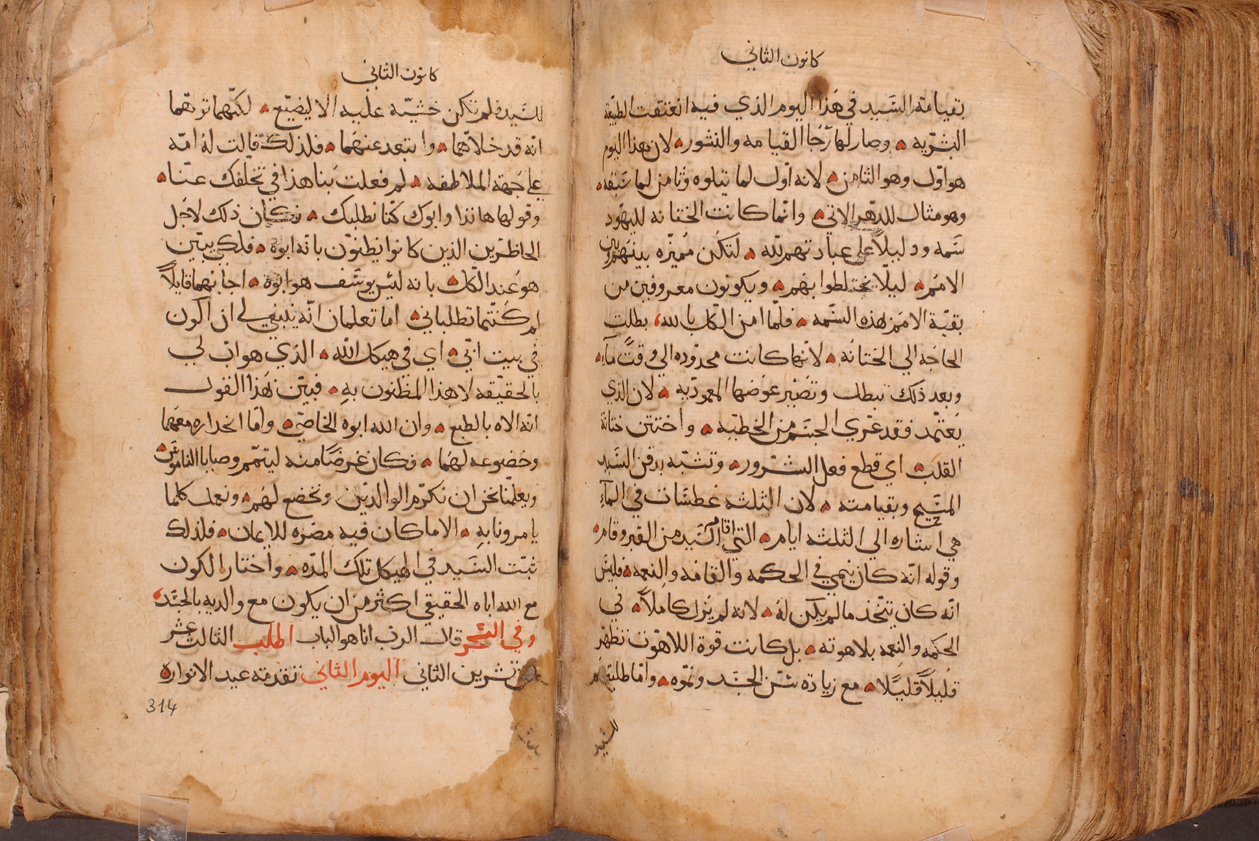 كانون الثاني
بقيامة السيد في هذا اليوم الذي فيه انعتقت الطبيعة
البشرية وصار لها رجا القيامه والنشور لان هذا اليوم
هو اول وهو الثامن لانه اول لما يتلوه وثامن لما سبقه
وهو مثال للدهر الاتي وانما كانت الختانه لليهود
سمه ودليلاً على عبادتهم لله لتكون مميزه بينهم وبين
الامم ليلا يختلطوا بهم ويكونون معروفين من
بقية الامم بهذه السمه فلما امن الكل بالله بطلت
الحاجه الى الختانه لانها كانت محدوده الى وقتً مآ
وبعد ذلك تبطل وتصير عوضها المعموديه لان الذي
يعتمد فقد عري الجسم من الخطيه واختتن ختانة
القلب اي قطع فعل الشرور وتشبه بدفن السيد
المسيح وبقيامته لان الثلثه غطسات في المآء
هي اشاره الى الثلثه ايام التي اقام السيد من القبر وقام
وقوله انه كان ينمي في الحكمه والقامه والنعمه فليس
انه كان يتخذ ما لم يكن له لانه لم يزل كاملاً في
الحكمه والنعمه بلاهوته بل كانت قوة اللاهوت تظهر
قليلاً قليلاً مع زيادة سن الجسد ونموه واما طلبتهم
للسيد
كانون الثاني
للسيد فلم تكن خشيه عليه الا يضيع لكنهما توهما
انه قد خلاهما وابتعد عنهما فلذلك قالت له امه
على جهة الملاطفه لم فعلت بنا هذا في تخلفك عنا
وقولها هانذا وابوك كنا نطلبك فكان ذلك لاجل
الحاظرين الذين كانوا يظنون بانه ابوه فلكي يبين
هو عند الكل بانه ليس يوسف هو ابوه اجابهما قايلاً
لم كنتما تطلباني اما تعلمان انه ينبغي لي ان اكون
في بيت ابي اي في هيكل الله الذي هو اب لي
بالحقيقه لا هذا المظنون به فبين بهذا القول
انه الاه بالطبع وان الله ابوه الخاص واما انحداره معهما
وخضوعه لهما فكان غرضًا منه ليتمم وصايا الناموس
ويعلمنا نحن ان نكرم الوالدين ونخضع لهم ونعمل كلما
يامرونا به الا ما كان فيه مضره للايمان فلذلك
ثبت السيد في الهيكل تلك المده واختار الكون
مع الله اباه الحقيقي اكثر من ان يكون مع والديه بالجسد
وفي السحر قال الرب انا هو الباب اطلب الثالث عشر
من تشرين الثاني اليوم الثاني تقدمة عيد الانواره
314